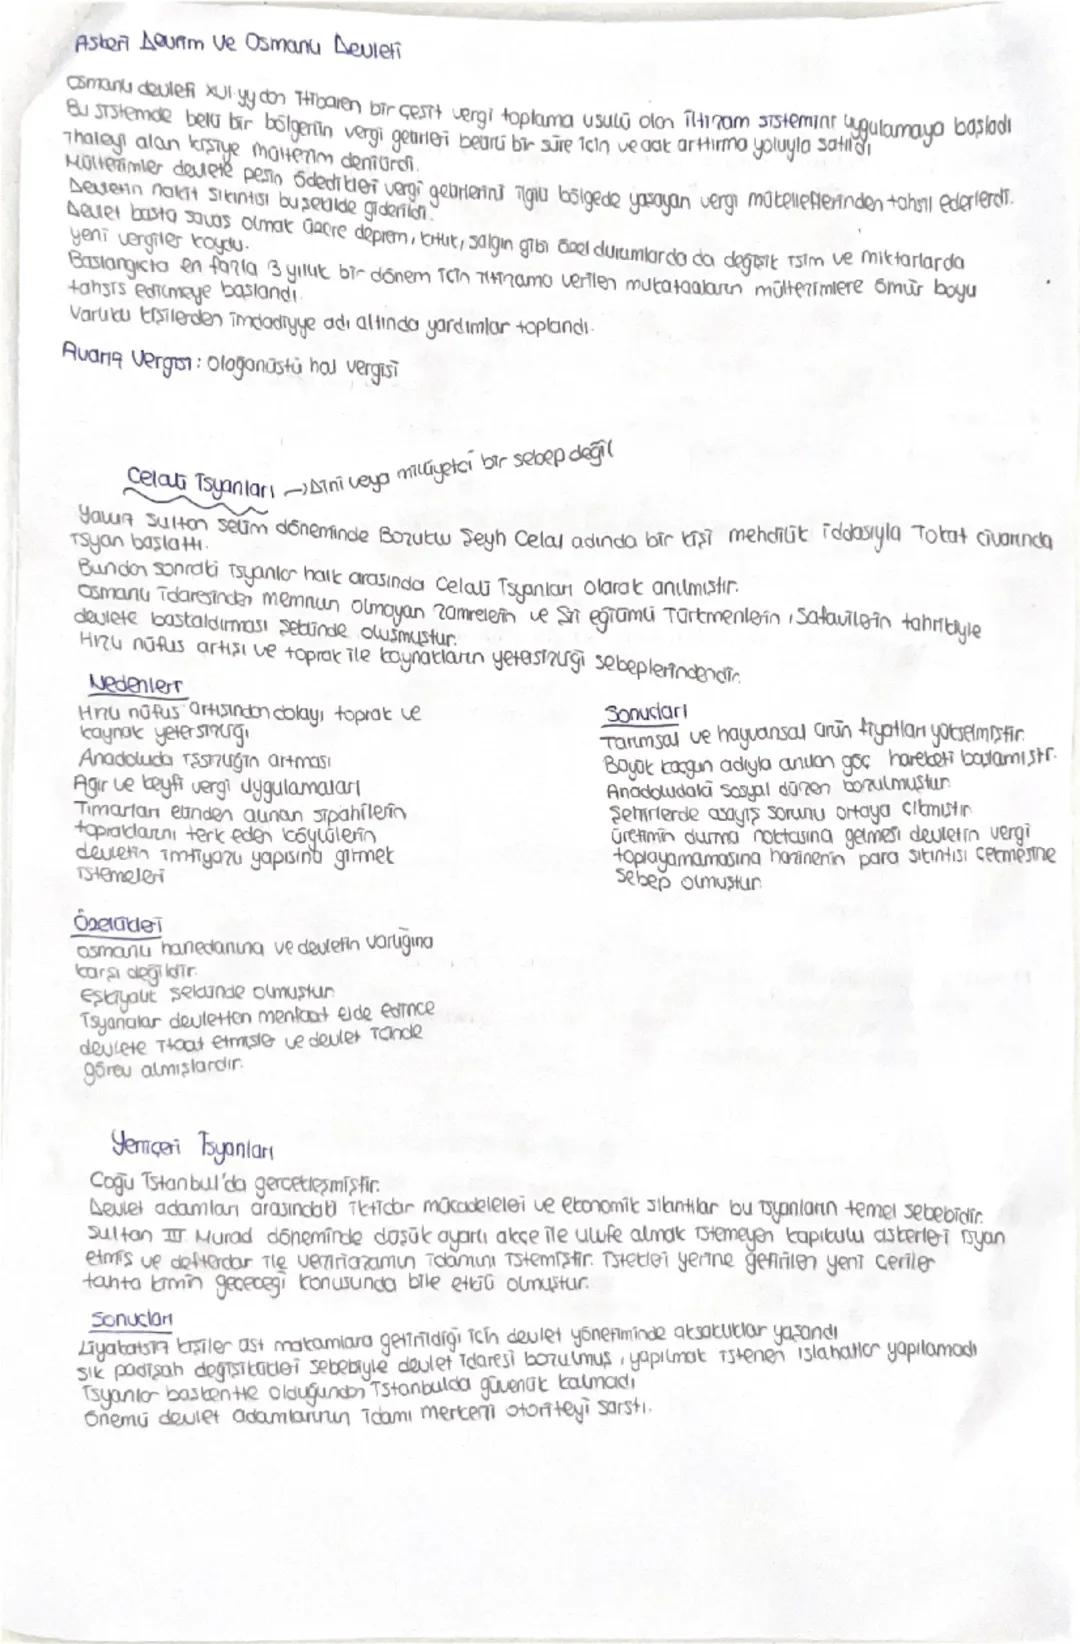 Askeri Devrim Ve Osmanlı Devleti
Osmanlı devleti XVI. yy dan itibaren bir çeşit vergi toplama usulü olan iltizam sistemini uygulamaya başladı
Bu sistemde belli bir bölgenin vergi gelirleri belirli bir süre için ve açık arttırma yoluyla satıldı
İhaleyi alan kişiye mültezim denilirdi.
Mültezimler devlete peşin ödedikleri vergi gelirlerini ilgili bölgede yaşayan vergi mükelleflerinden tahsil ederlerdi.
Devletin nakit sıkıntısı bu şekilde giderildi.
Devlet başta savaş olmak üzere deprem, kıtlık, salgın gibi özel durumlarda da değişik isim ve miktarlarda
yeni vergiler koydu.
Başlangıçta en fazla 3 yıllık bir dönem için iltizama verilen mukataaların mültezimlere ömür boyu
tahsis edilmeye başlandı.
Varlıklı kişilerden imdadiyye adı altında yardımlar toplandı.
Avarız Vergisi: Olağanüstü hal vergisi
Celali İsyanları → Dini veya milliyetçi bir sebep değil
Yavuz Sultan Selim döneminde Bozuklu Şeyh Celal adında bir kişi mehdilik iddasıyla Tokat civarında
isyan başlattı.
Bundan sonraki isyanlar halk arasında Celali İsyanları olarak anılmıştır.
Osmanlı idaresinden memnun olmayan zümrelerin ve Şii eğilimli Türkmenlerin, Safavilerin tahrikiyle
devlete baskaldırması şeklinde oluşmuştur.
Hızlı nüfus artışı ve toprak ile kaynakların yetersizliği sebeplerindendir.
Nedenleri
Hızlı nüfus artışından dolayı toprak ve
kaynak yetersizliği
Anadoluda işsizliğin artması
Ağır ve keyfi vergi uygulamaları
Tımarları elinden alınan sipahilerin
topraklarını terk eden köylülerin
devletin imtiyazlı yapısına girmek
istemeleri
Sonuçları
Tarımsal ve hayvansal ürün fiyatları yükselmiştir.
Büyük kaçgun adıyla anılan göç hareketi başlamıştır.
Anadoludaki sosyal düzen bozulmuştur.
Şehirlerde asayiş sorunu ortaya çıkmıştır
üretimin durma noktasına gelmesi devletin vergi
toplayamamasına hazinenin para sıkıntısı çekmesine
sebep olmuştur
Özellikleri
osmanlı hanedanına ve devletin varlığına
karşı değildir.
Eşkiyalık şeklinde olmuştur
İsyancılar devletten menfaat elde edince
devlete itaat etmişler ve devlet içinde
görev almışlardır.
Yeniçeri İsyanları
Çoğu İstanbul'da gerçekleşmiştir.
Devlet adamları arasındaki iktidar mücadeleleri ve ekonomik sıkıntılar bu isyanların temel sebebidir.
Sultan III Murad döneminde düşük ayarlı akçe ile ulufe almak istemeyen kapıkulu askerleri isyan
etmiş ve defterdar ile veziriazamın idamını istemiştir. İstekleri yerine getirilen yeni çeriler
tahta kimin geçeceği konusunda bile etkili olmuştur.
Sonuçları
Liyakatsiz kişiler üst makamlara getirildiği için devlet yönetiminde aksaklıklar yaşandı
Sık padişah değişiklikleri sebebiyle devlet idaresi bozulmuş, yapılmak istenen ıslahatlar yapılamadı
İsyanlar başkentte olduğundan İstanbulda güvenlik kalmadı
Önemli devlet adamlarının idamı merkezi otoriteyi sarstı.